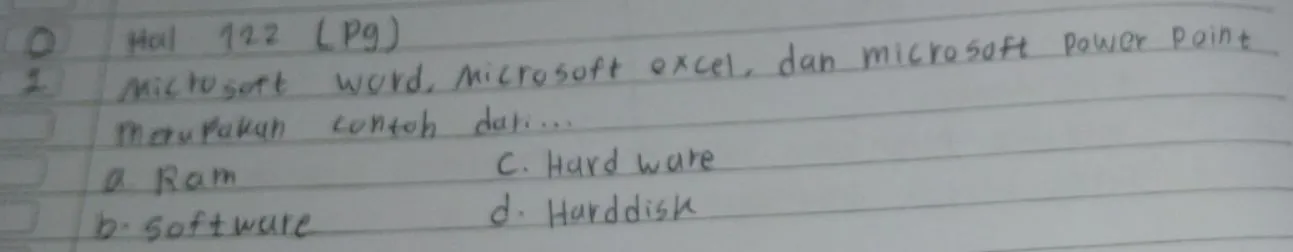 Hal 122 (Pg)
1 Microsoft word, Microsoft excel, dan microsoft power point
merupakan contoh dari...
a. Ram c. Hard ware
b. software d. Harddisk